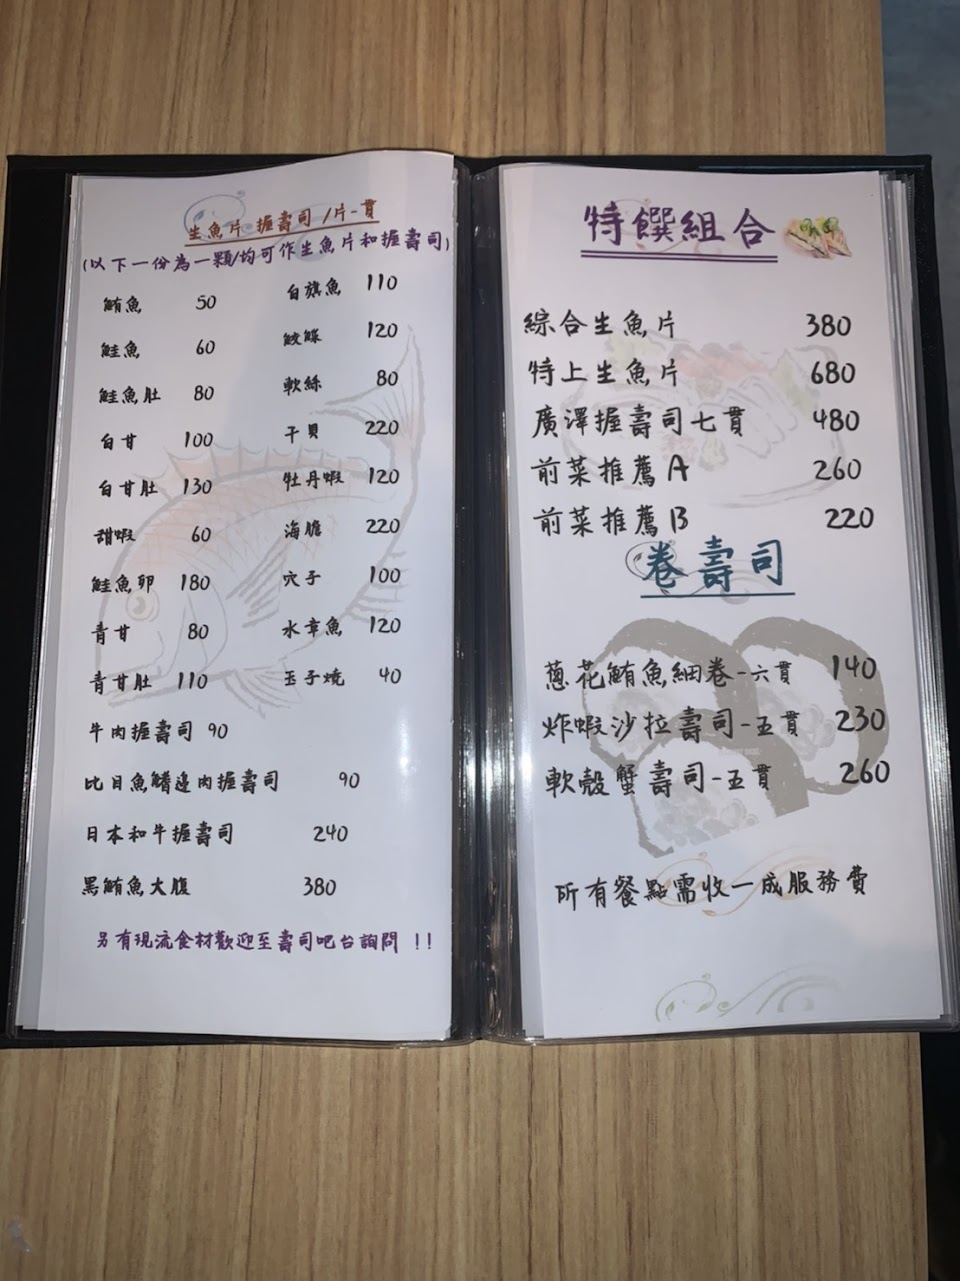 生魚片 握壽司 /片-貫
(以下一份為一顆/均可作生魚片和握壽司)
鮪魚 50
鮭魚 60
鮭魚肚 80
白甘 100
白甘肚 130
甜蝦 60
鮭魚卵 180
青甘 80
青甘肚 110
牛肉握壽司 90
比目魚鰭邊肉握壽司 90
日本和牛握壽司 240
黑鮪魚大腹 380
白旗魚 110
鮟鱇 120
軟絲 80
干貝 220
牡丹蝦 120
海膽 220
穴子 100
水章魚 120
玉子燒 40
另有現流食材歡迎至壽司吧台詢問 !!
特饌組合
綜合生魚片 380
特上生魚片 680
廣澤握壽司七貫 480
前菜推薦A 260
前菜推薦B 220
卷壽司
蔥花鮪魚細卷-六貫 140
炸蝦沙拉壽司-五貫 230
軟殼蟹壽司-五貫 260
所有餐點需收一成服務費